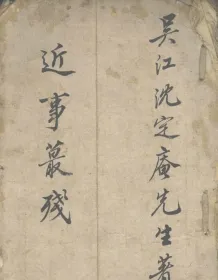 吴江沈定庵先生著
近事蕞残